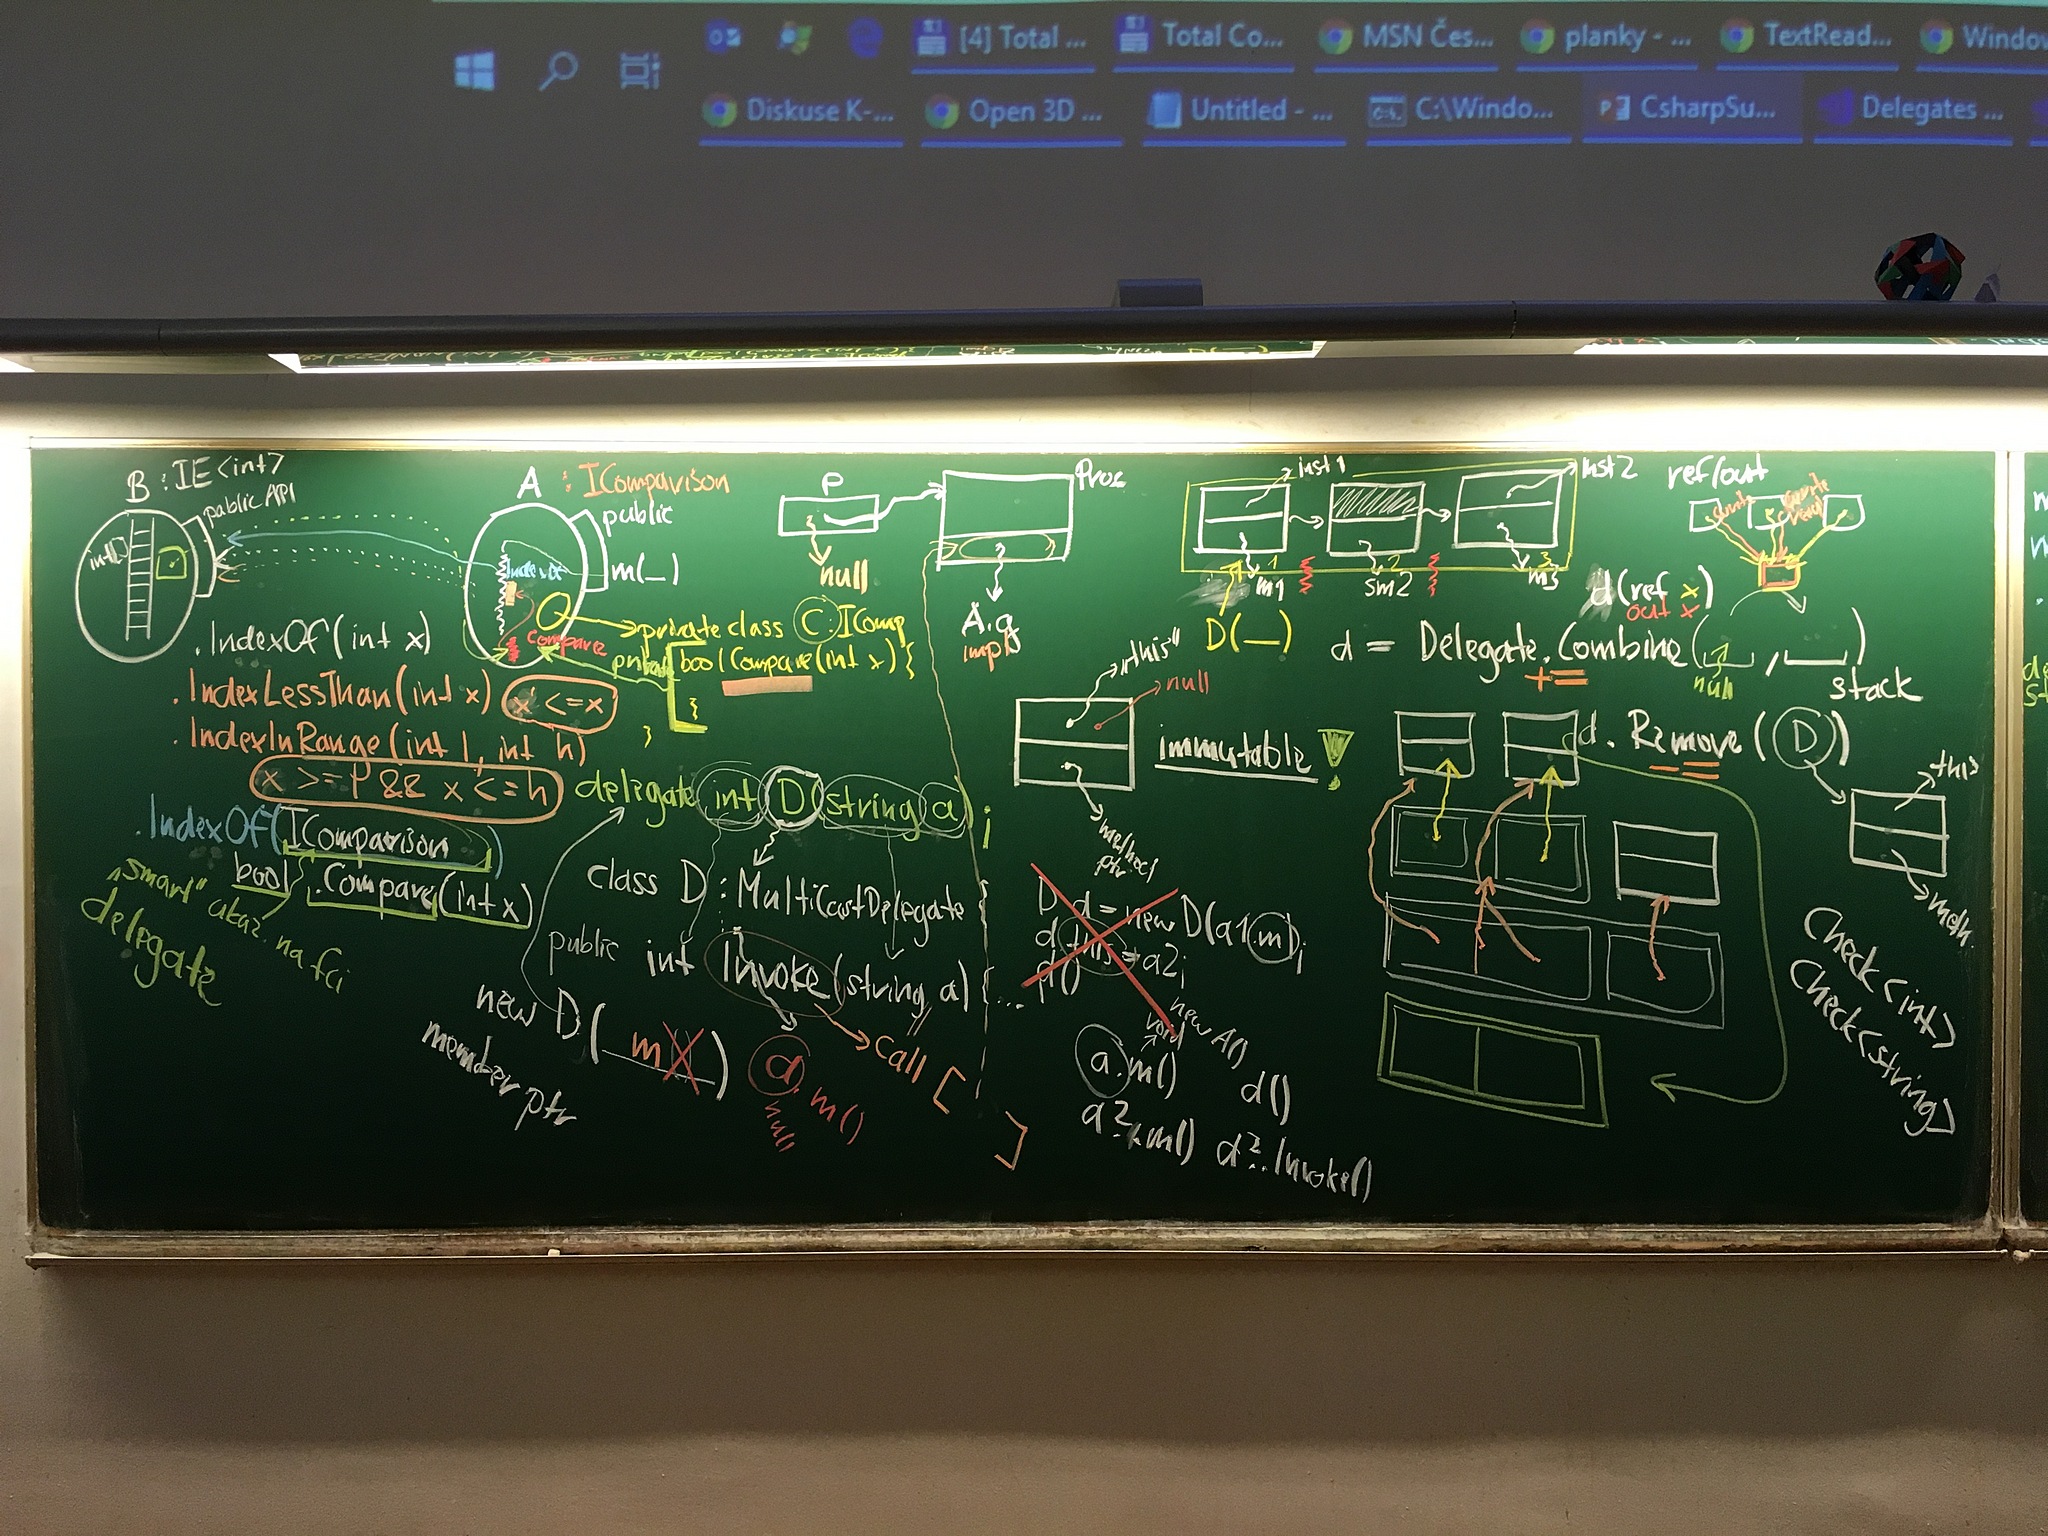 [4] Total ...
Total Co...
MSN Čes...
planky - ...
TextRead...
Window
Diskuse K-...
Open 3D ...
Untitled - ...
C:\Windo...
CsharpSu...
Delegates ...
B : IE<int>
public API
int
.IndexOf(int x)
.IndexLessThan(int x) x <= x
.IndexInRange(int l, int h)
x >= l && x <= h
.IndexOf(IComparison)
bool .Compare(int x)
"smart" ukaz. na fci
delegate
A : IComparison
public
m(_)
IndexOf
Compare
private class C : IComp
private bool Compare(int x) {
}
}
delegate int D(string a);
class D : MultiCastDelegate {
public int Invoke(string a) {...
new D( m )
member ptr
a.m()
null
call [
]
P
null
A.g
impl
"this"
null
immutable !
method
ptr
D d = new D(a1.m);
d.this = a2;
d()
new A()
void
a.m()
d()
a?.m() d?.Invoke()
inst1
inst2
1
2
3
m1
sm2
m3
D(_)
ref/out
d(ref x)
out x
d = Delegate.Combine( , )
+=
null
stack
d.Remove(D)
-=
this
meth.
Check<int>
Check<string>